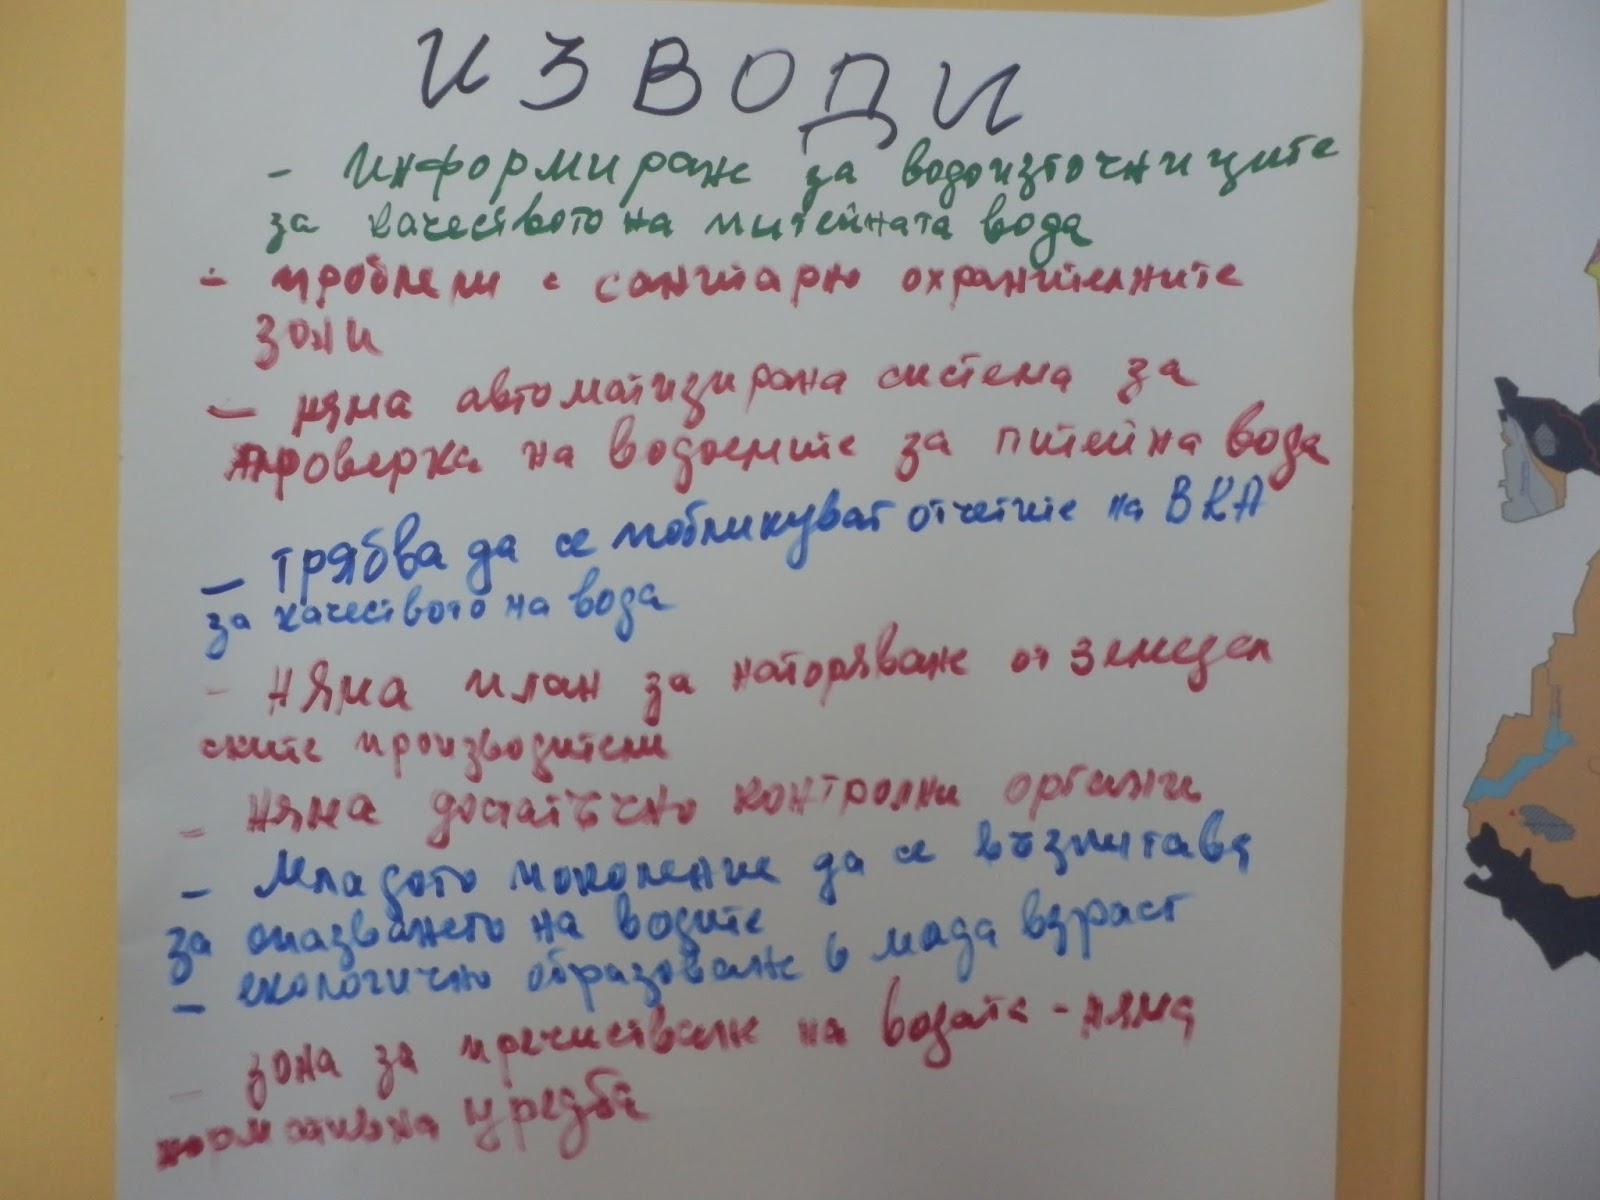 ИЗВОДИ
- Информиране за водоизточниците
за качеството на питейната вода
- проблеми с санитарно охранителните
зони
- няма автоматизирана система за
проверка на водоемите за питейна вода
- трябва да се побликуват отчетите на ВКА
за качеството на вода
- няма план за наторяване от земедел
ските производители
- няма достатъчно контролни органи
- Младото поколение да се възпитава
за опазването на водите
- екологично образование в млада възраст
- зона за пречистване на водата - няма
нормативна уредба